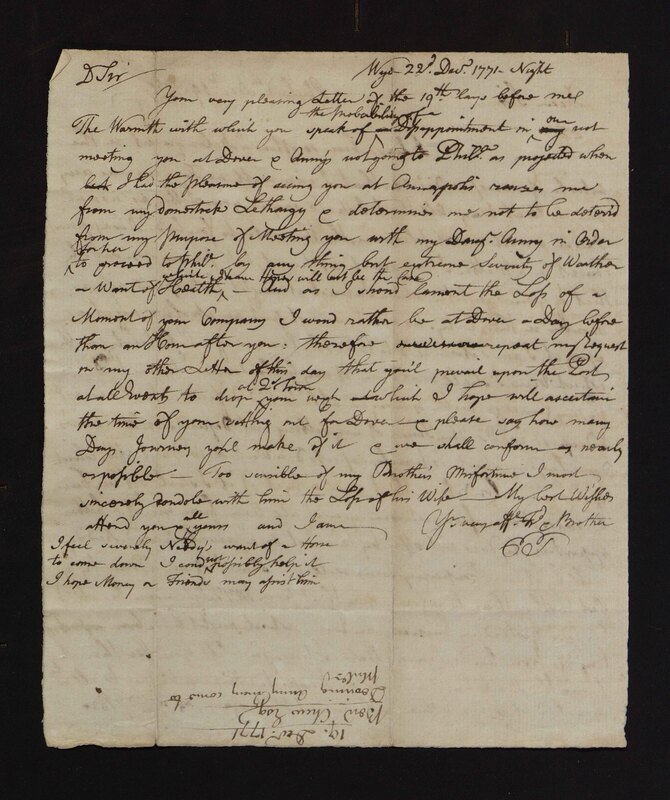 D Sir
Wye 22d. Decr. 1771 - Night
Your very pleasing Letter of the 19th. lays before me
the probability of a
The Warmth with which you speak of Disappointment in our not
meeting you at Dover & Anny's not going to Phila. as projected when
last I had the pleasure of seeing you at Annapolis rouzes me
from my domestick Lethargy & determines me not to be deterrd
from my purpose of Meeting you with my Daugr. Anny in Order
for her
to proceed to Phila. by any thing but extreme Severity of Weather
or Want of Health which I hope will not be the Case
And as I shoud lament the Loss of a
Moment of your Company I woud rather be at Dover a Day before
than an Hour after you: therefore repeat my Request
in my other Letter of this day that you'll prevail upon the Post
at all Events to drop at Qs. Town your which I hope will ascertain
the time of your setting out for Dover & please say how many
Days Journey you'l make of it & we shall conform as nearly
as possible - Too sensible of my Brother's Misfortune I most
sincerely condole with him the Loss of his Wife - My best Wishes
attend you & all yours and I am
Yr. very afft. Fd. & Brother
I feel severely Neddy's want of a Horse
to come down I coud not possibly help it
I hope Money or Friends may assist him
19. Decr. 1771
Benj. Chew Esqr.
Desiring Anny may come to
Philad.